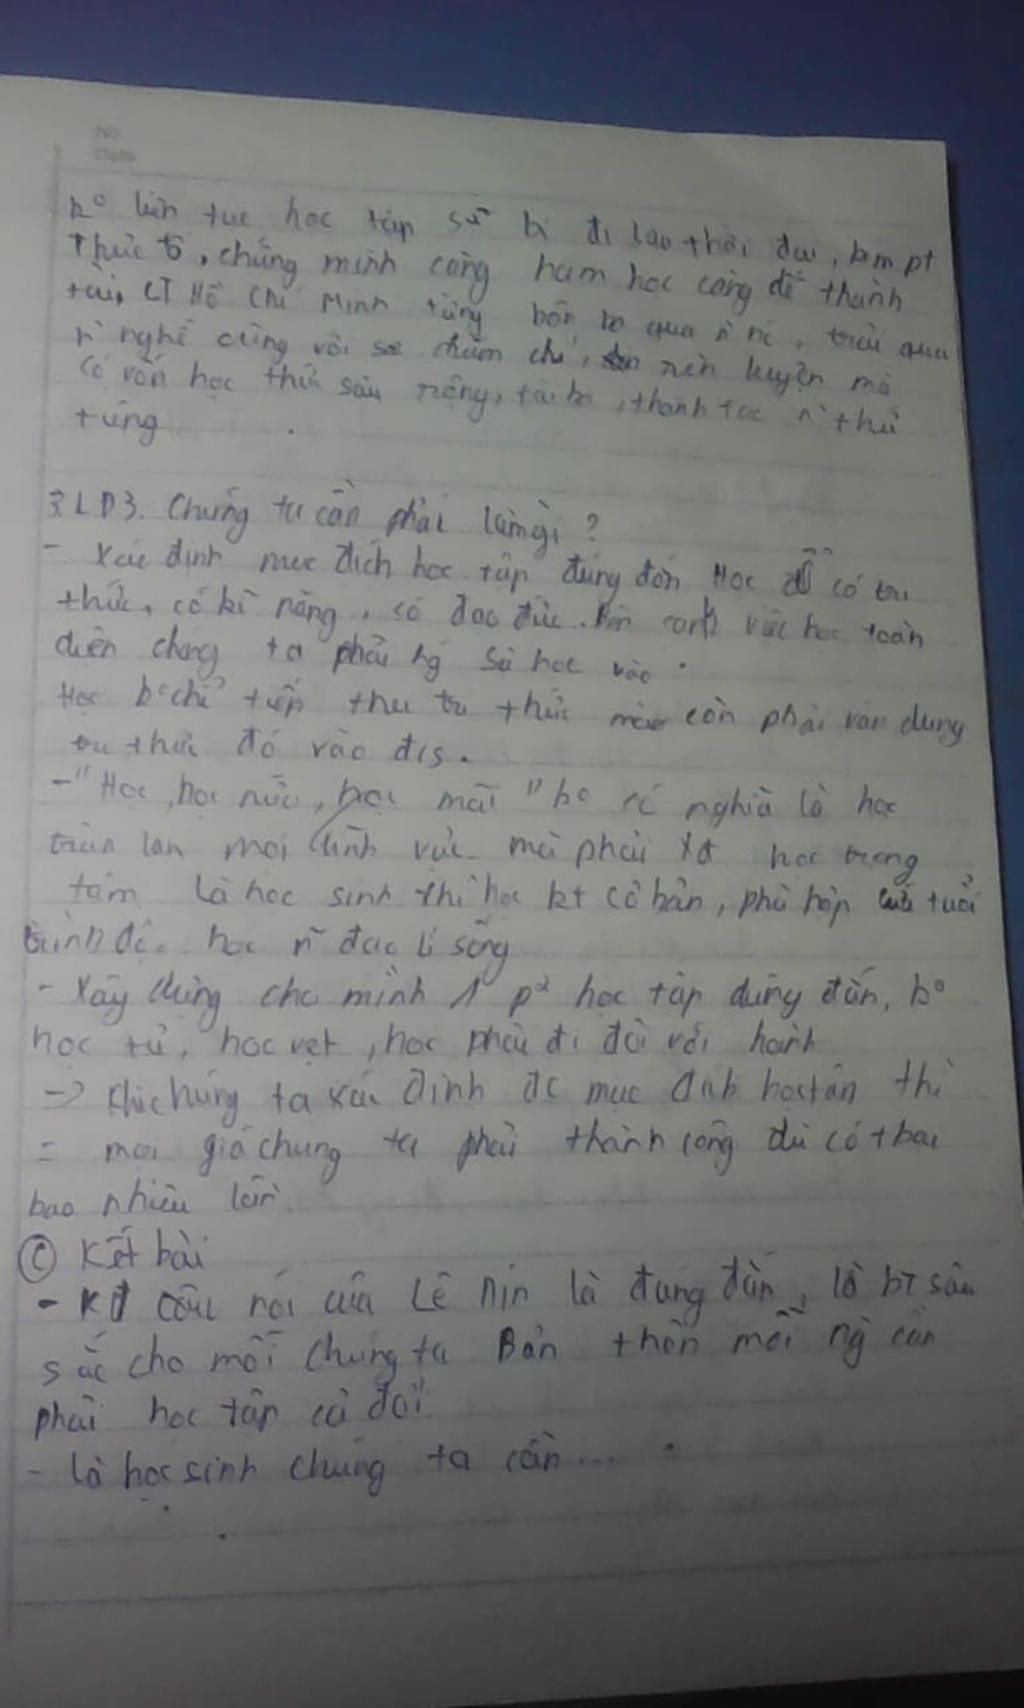 No
Date
k° liên tục học tập sẽ bị đi sau thời đại, kém pt
Thực tế, chứng minh càng ham học càng dễ thành
tài, CT Hồ Chí Minh từng bôn ba qua n` nc, trải qua
n` nghề cùng với sự chăm chỉ, rèn luyện mà
có vốn học thức sâu rộng, thành tạo n` thứ
tiếng
3. LĐ3. Chúng ta cần phải làm gì?
- Xác định mục đích học tập đúng đắn Học để có tri
thức, có kĩ năng, có đạo đức. Bên cạnh việc học toàn
diện chúng ta phải học vào
Học k° chỉ tiếp thu tri thức mà còn phải vận dụng
tri thức đó vào đ/s.
- "Học, học nữa, học mãi" k° có nghĩa là học
tràn lan mọi lĩnh vực mà phải học trọng
tâm Là học sinh thì học kt cơ bản, phù hợp lứa tuổi
trình độ. học đạo lí sống
- Xây dựng cho mình 1 p² học tập đúng đắn, k°
học tủ, học vẹt, học phải đi đôi với hành
-> Khi chúng ta xác định đc mục đích học tập thì
= mọi giá chúng ta phải thành công dù có thất bại
bao nhiêu lần.
(C) Kết bài
- KĐ câu nói của Lê Nin là đúng đắn, là bt sâu
sắc cho mỗi chúng ta Bản thân mỗi ng cần
phải học tập cả đời
- Là học sinh chúng ta cần...